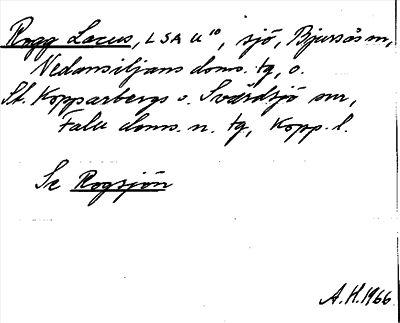 Rogg Lacus, LSA U¹⁰, sjö, Bjursås sn,
Nedansiljans doms. tg, o.
St. Kopparbergs o. Svärdsjö snr,
Falu doms. n. tg, Kopp. l.
Se Rogsjön
A.H. 1966